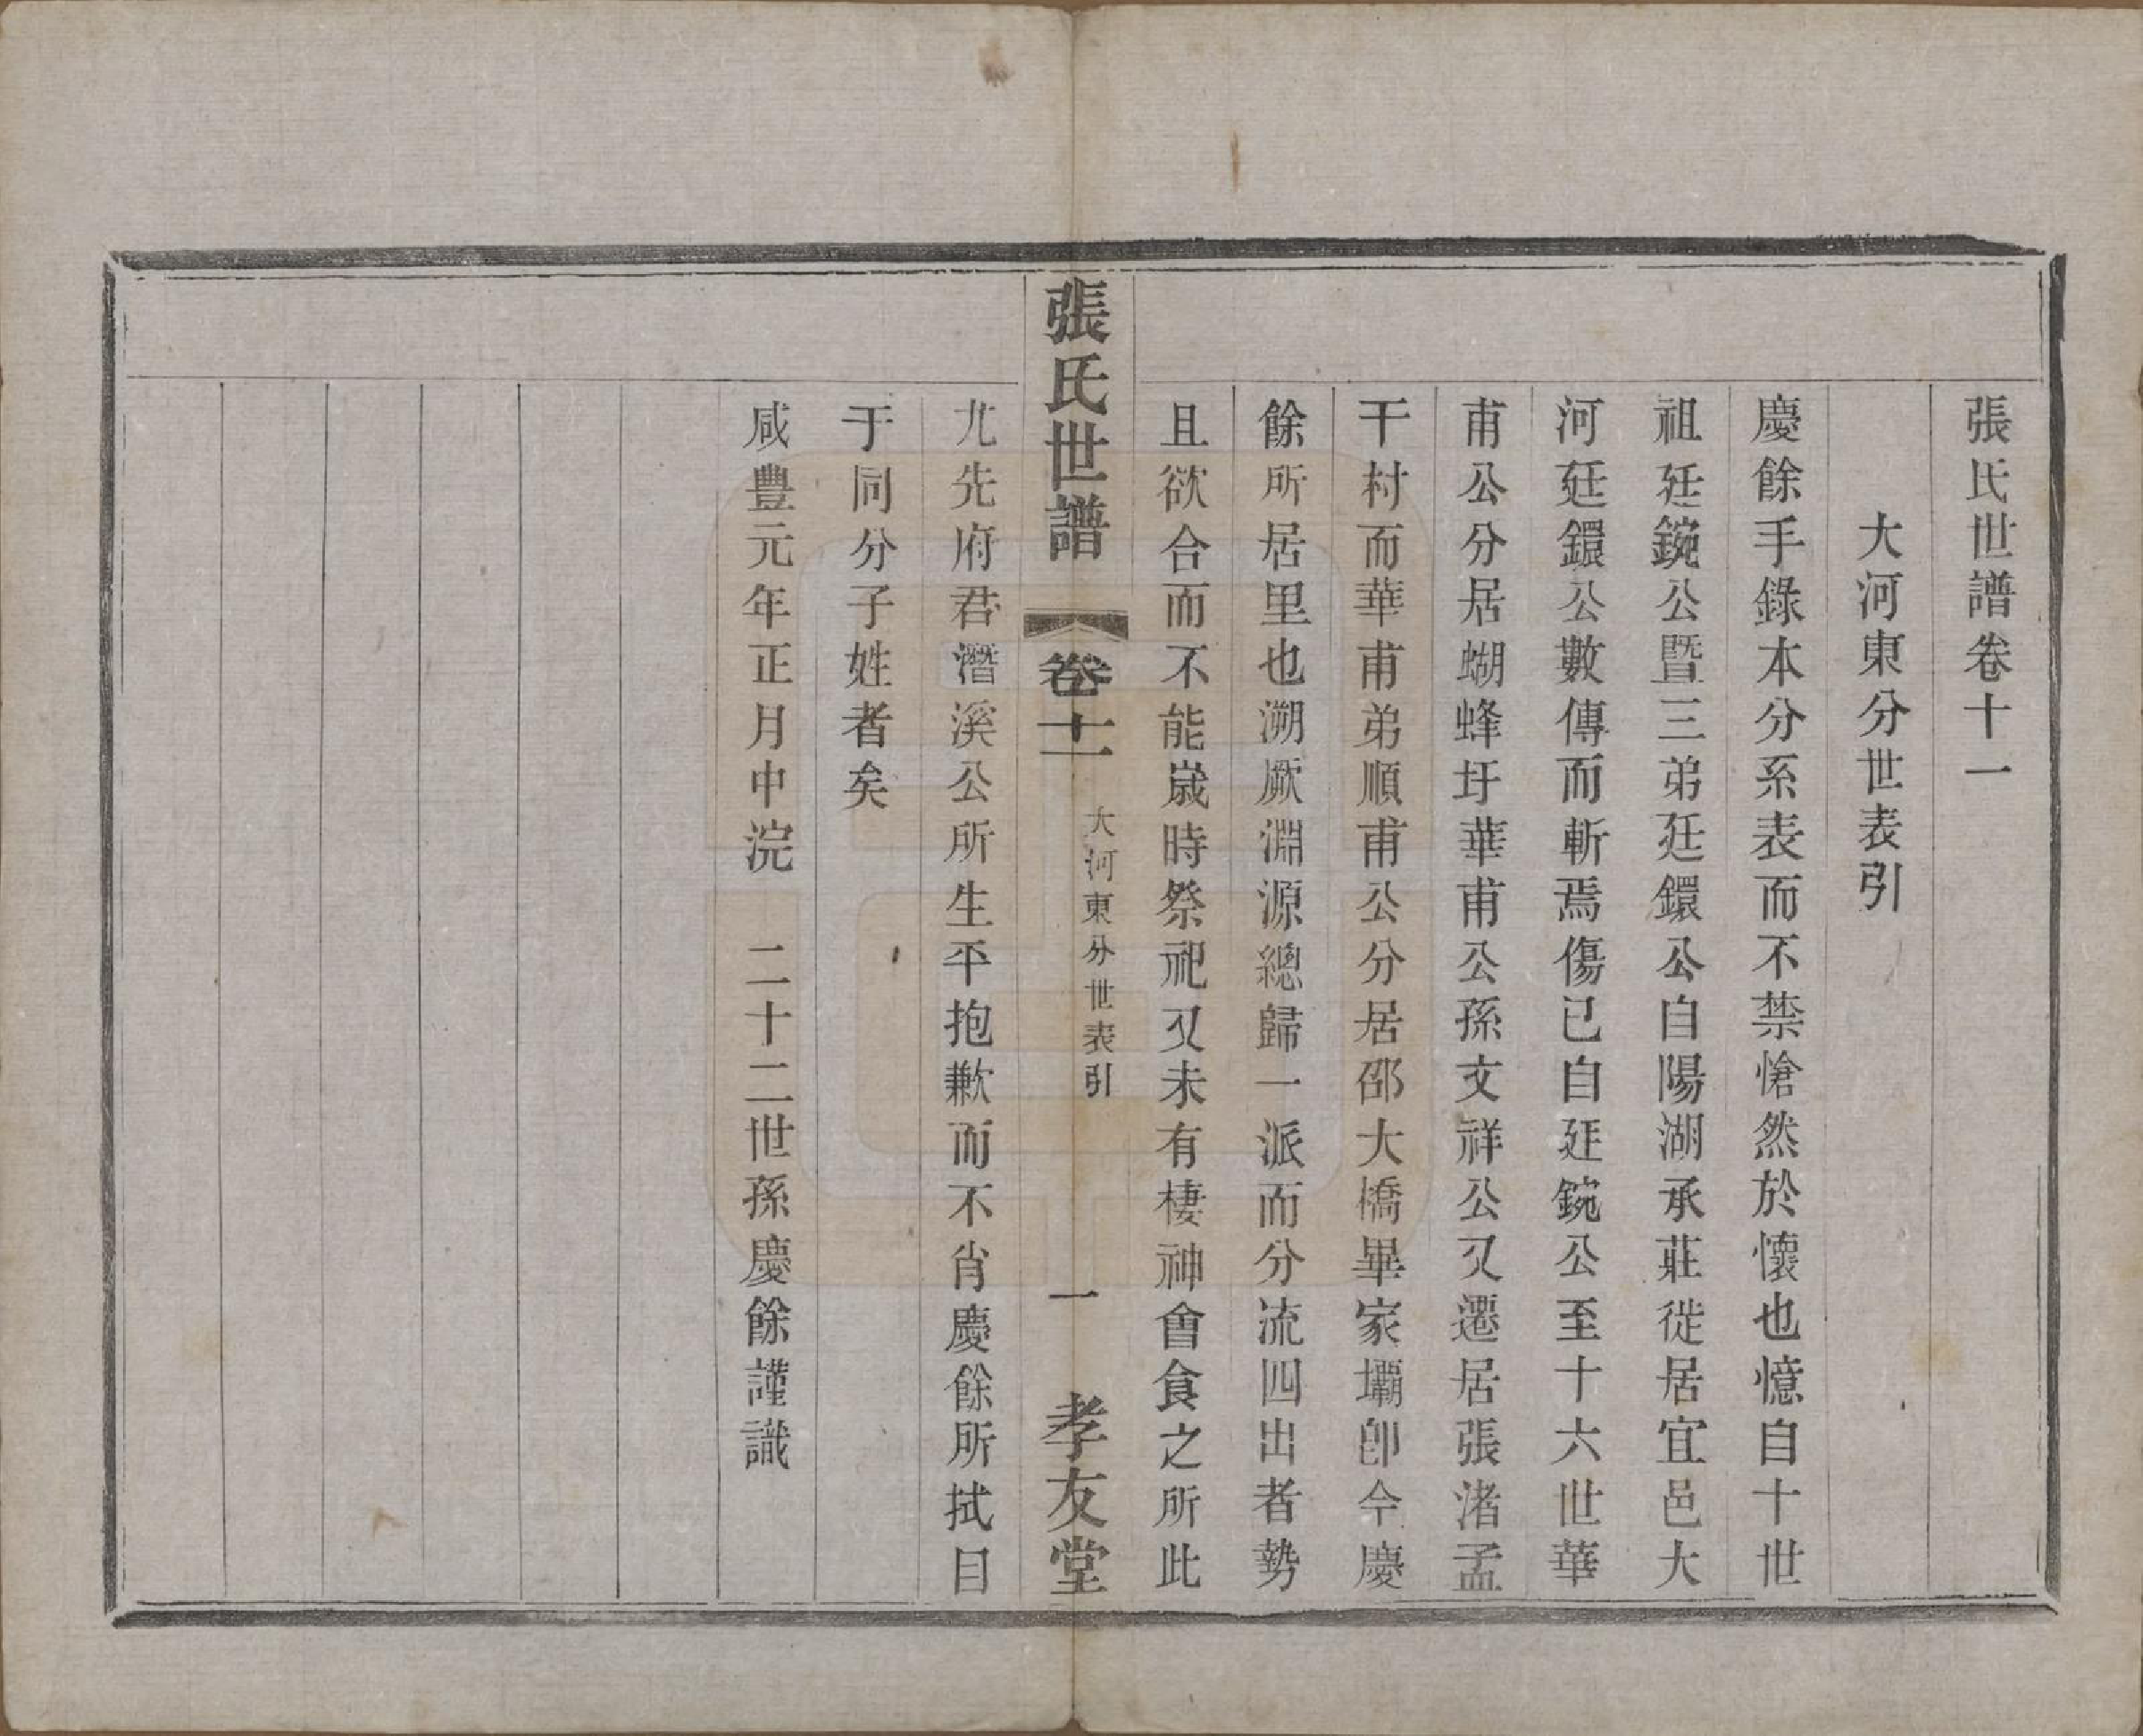 張氏世譜卷十一
大河東分世表引
慶餘手錄本分系表而不禁愴然於懷也憶自十世
祖廷鋺公暨三弟廷鐶公自陽湖承莊徙居宜邑大
河廷鐶公數傳而斬焉傷已自廷鋺公至十六世華
甫公分居蝴蜂圩華甫公孫文祥公又遷居張渚孟
干村而華甫弟順甫公分居邵大橋畢家壩卽今慶
餘所居里也溯厥淵源總歸一派而分流四出者勢
且欲合而不能歲時祭祀又未有棲神會食之所此
張氏世譜
卷十一
大河東分世表引
一
孝友堂
尤先府君潛溪公所生平抱歉而不肖慶餘所拭目
于同分子姓者矣
咸豐元年正月中浣　二十二世孫慶餘謹識